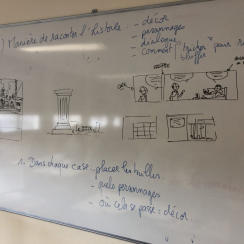 ) Manière de raconter l'histoire
- décor
- personnages
- dialogue
- Comment "tricher" pour
bluffer
1. Dans chaque case - placer les bulles
- quels personnages
- où cela se passe = décor